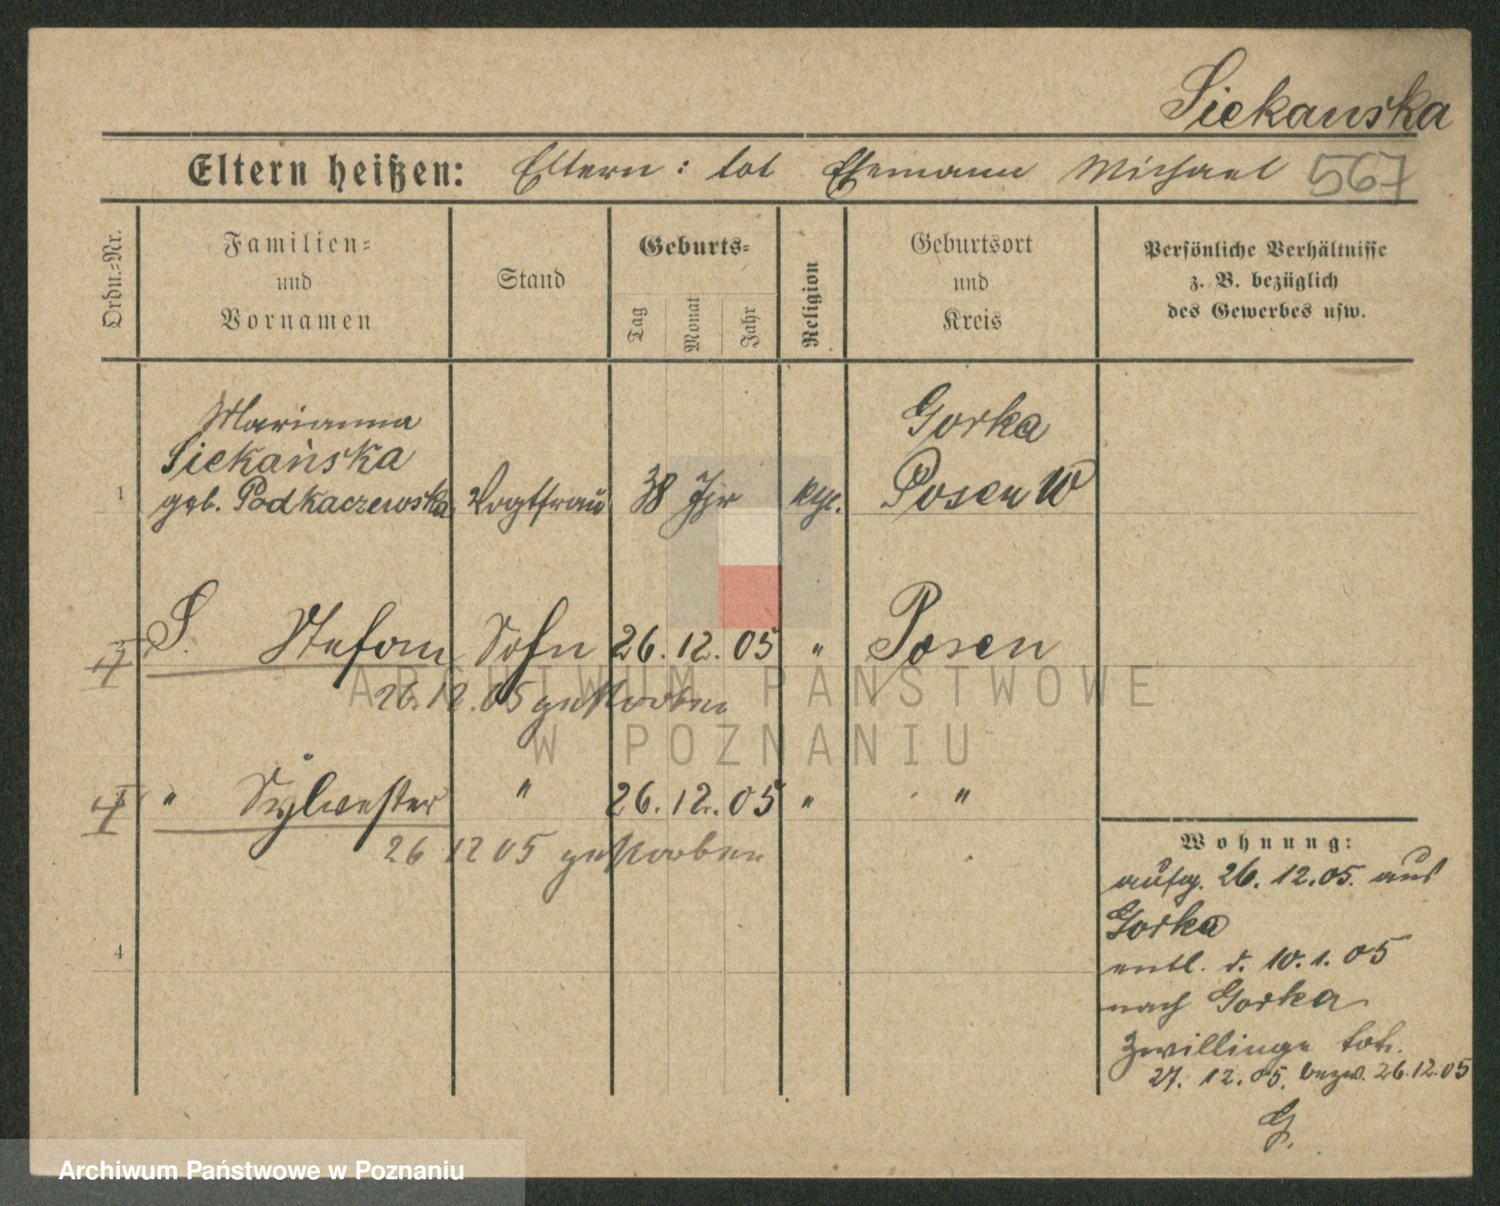 Siekanska
Eltern heißen: Eltern: tot Ehemann Michael 567
Ordn.-Nr.
Familien-
und
Vornamen
Stand
Geburts-
Tag
Monat
Jahr
Religion
Geburtsort
und
Kreis
Persönliche Verhältnisse
z. B. bezüglich
des Gewerbes usw.
Marianna
Siekańska
1 geb. Podkaczewska Vogtfrau 38 Jhr kth. Gorka Posen W
S. Stefan Sohn 26. 12. 05 " Posen
26. 12. 05 gestorben
" Sylvester " 26. 12. 05 " "
26 12 05 gestorben
4
Wohnung:
aufg. 26. 12. 05. aus
Gorka
entl. d. 10. 1. 05
nach Gorka
Zwillinge tot.
27. 12. 05. bezw. 26. 12. 05
G.
ARCHIWUM PAŃSTWOWE
W POZNANIU
Archiwum Państwowe w Poznaniu